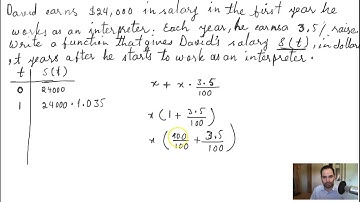 David earns $24,000 in salary in the first year he
works as an interpreter. Each year, he earns a 3.5% raise.
Write a function that gives David's salary S(t), in dollars,
t years after he starts to work as an interpreter.
t S(t)
0 24000
1 24000 · 1.035
x + x · 3.5/100
x (1 + 3.5/100)
x (100/100 + 3.5/100)